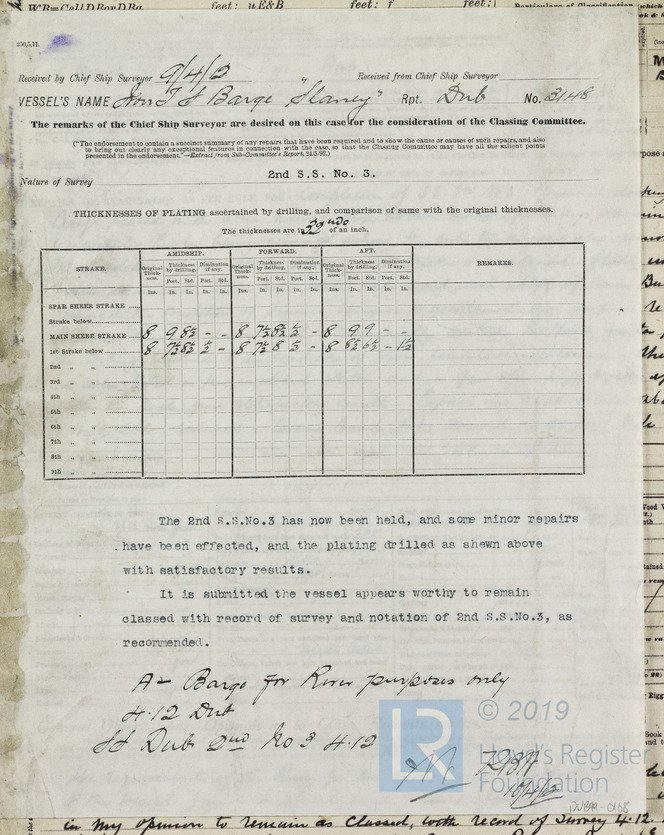 W.B=CellDBorDBa feet: uE&B feet: f feet:
Particulars of Classification (which
250,5,11.
Received by Chief Ship Surveyor 9/4/12 Received from Chief Ship Surveyor
VESSEL'S NAME Iron Barge "Slaney" Rpt. Dub No. 3148
The remarks of the Chief Ship Surveyor are desired on this case for the consideration of the Classing Committee.
("The endorsement to contain a succinct summary of any repairs that have been required and to show the cause or causes of such repairs, and also
to bring out clearly any exceptional features in connection with the case, so that the Classing Committee may have all the salient points
presented in the endorsement."—Extract from Sub-Committee's Report, 24/5/92.)
Nature of Survey 2nd S.S. No. 3.
THICKNESSES OF PLATING ascertained by drilling, and comparison of same with the original thicknesses.
The thicknesses are in 32nds of an inch.
STRAKE. AMIDSHIP. FORWARD. AFT. REMARKS.
Original Thickness. Thickness by drilling. Diminution if any. Original Thickness. Thickness by drilling. Diminution if any. Original Thickness. Thickness by drilling. Diminution if any.
Port. Std. Port. Std. Port. Std. Port. Std. Port. Std. Port. Std.
Ins. In. In. In. In. Ins. In. In. In. In. Ins. In. In. In. In.
SPAR SHEER STRAKE
Strake below
MAIN SHEER STRAKE 8 9 8½ - - 8 7½ 8½ ½ - 8 9 9 - -
1st Strake below 8 7½ 8½ ½ - 8 7½ 8 ½ - 8 8½ 6½ - 1½
2nd " "
3rd " "
4th " "
5th " "
6th " "
7th " "
8th " "
9th " "
The 2nd S.S.No.3 has now been held, and some minor repairs
have been effected, and the plating drilled as shewn above
with satisfactory results.
It is submitted the vessel appears worthy to remain
classed with record of survey and notation of 2nd S.S.No.3, as
recommended.
A- Barge for River purposes only
4.12 Dub
SS Dub 2nd No 3 4.12
10/4/12
LR © 2019
Lloyd's Register
Foundation
DUB41-0165
in my opinion to remain as Classed, with record of Survey 4.12.